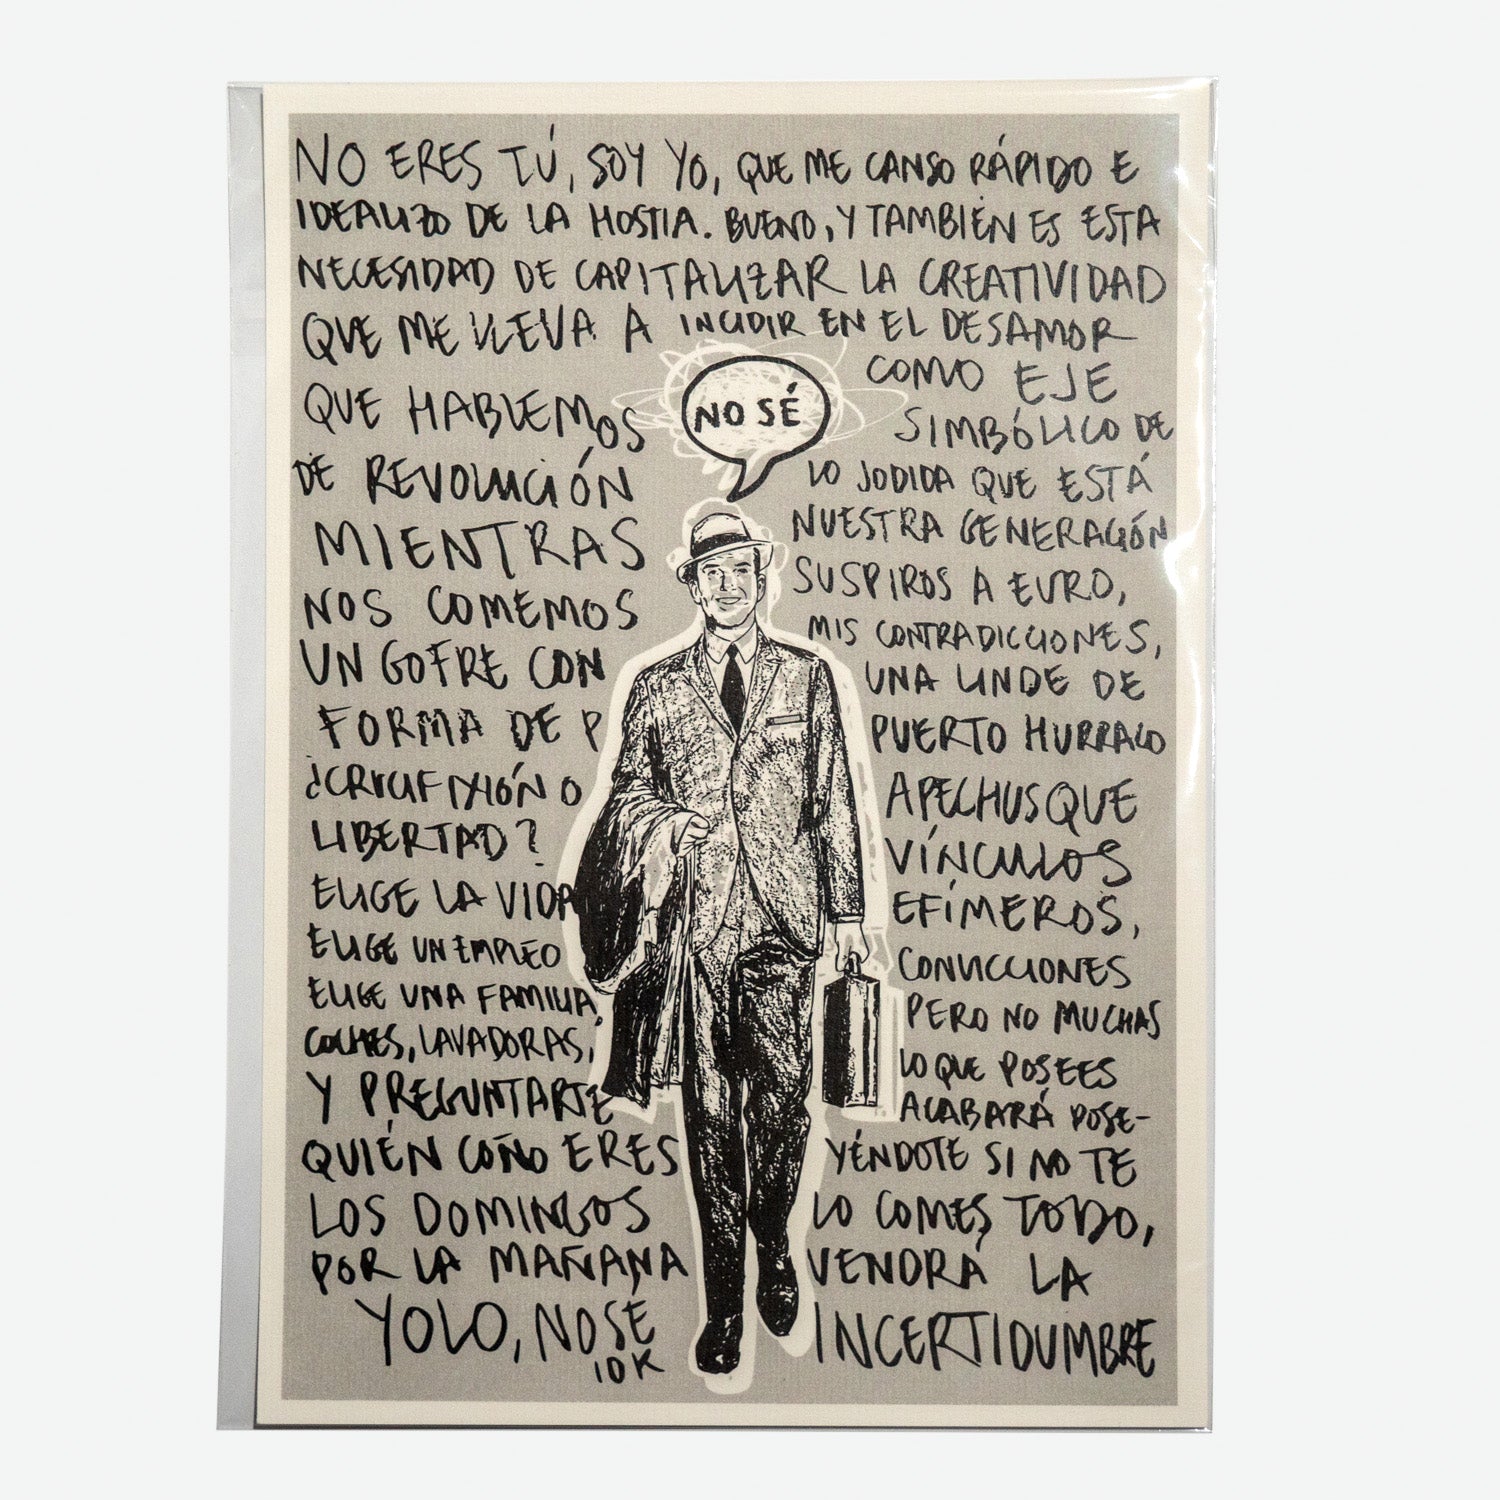 NO ERES TÚ, SOY YO, QUE ME CANSO RÁPIDO E
IDEALIZO DE LA HOSTIA. BUENO, Y TAMBIÉN ES ESTA
NECESIDAD DE CAPITALIZAR LA CREATIVIDAD
QUE ME LLEVA A INCIDIR EN EL DESAMOR
COMO EJE
SIMBÓLICO DE
LO JODIDA QUE ESTÁ
NUESTRA GENERACIÓN
SUSPIROS A EURO,
MIS CONTRADICCIONES,
UNA LINDE DE
PUERTO HURRACO
A PECHUS QUE
VÍNCULOS
EFÍMEROS,
CONVICCIONES
PERO NO MUCHAS
LO QUE POSEES
ACABARÁ POSE-
YÉNDOTE SI NO TE
LO COMES TODO,
VENDRÁ LA
INCERTIDUMBRE
NO SÉ
QUE HABLEMOS
DE REVOLUCIÓN
MIENTRAS
NOS COMEMOS
UN GOFRE CON
FORMA DE P
¿CRUCIFIXIÓN O
LIBERTAD?
ELIGE LA VIDA
ELIGE UN EMPLEO
ELIGE UNA FAMILIA,
COCHES, LAVADORAS,
Y PREGUNTARTE
QUIÉN COÑO ERES
LOS DOMINGOS
POR LA MAÑANA
YOLO, NO SÉ
10K